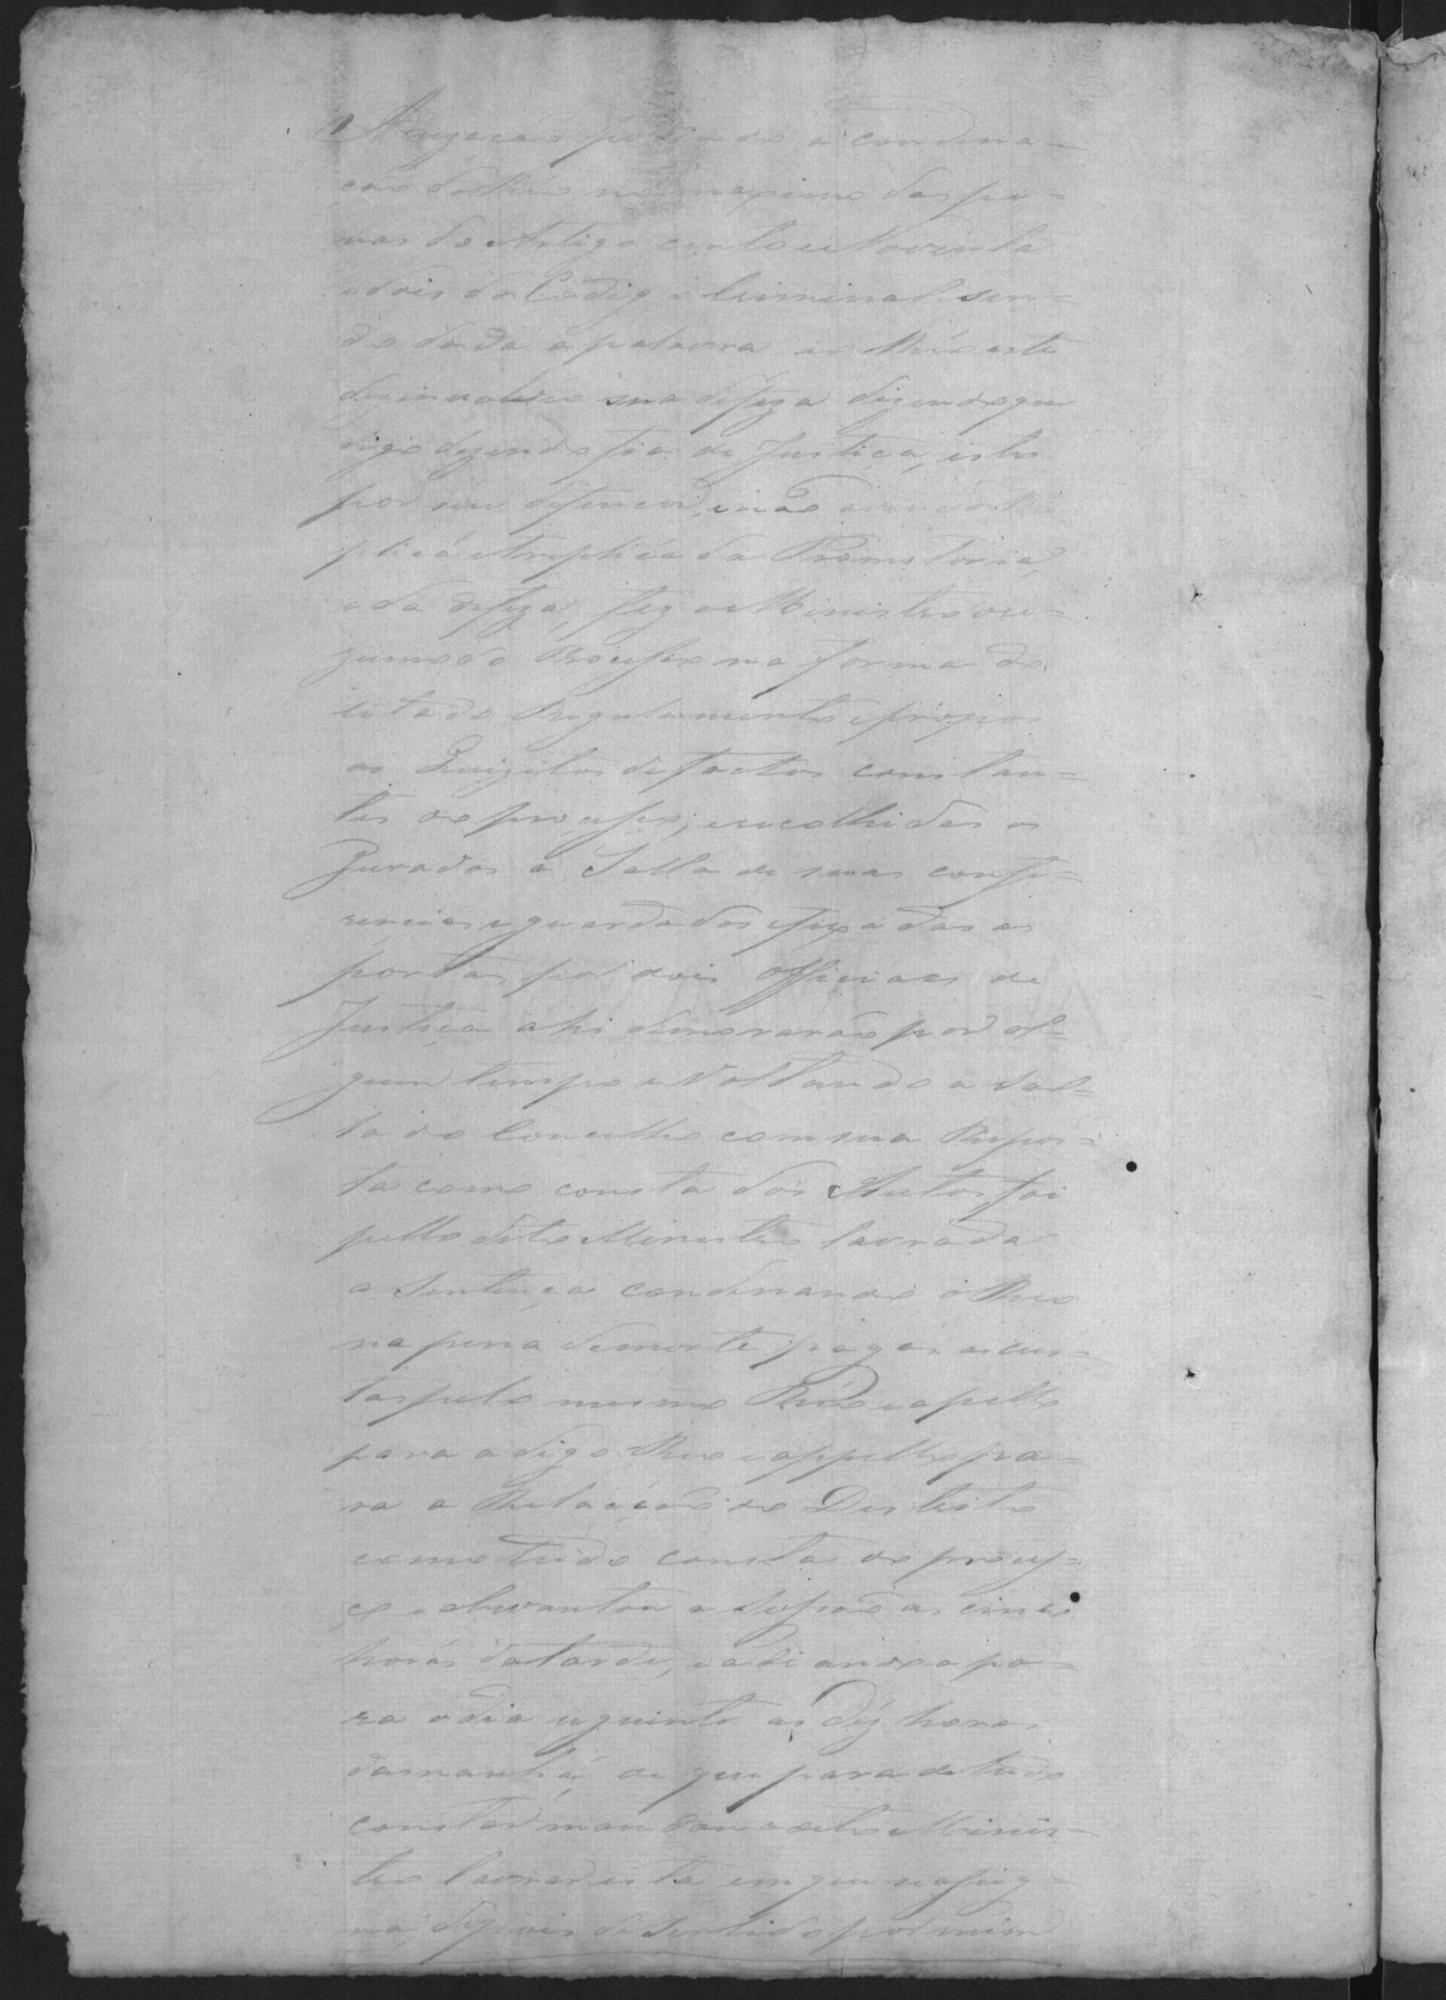 Acuzação pedindo a condena-
ção do Reo no maximo das pe-
nas do Artigo cento e Noventa
e dois do Codigo Criminal sen-
do dada a palavra ao Reo este
desinvolveo sua defeza dizendo que
digo dizendo fia de Justiça, isto
por seu defençor, e não avendo Re
plica e treplica da Promotoria,
e da defeza, fez o Ministro re-
zumo do Processo na forma do
citado Regulamento e propos
os Quizitos de factos constan-
tes do processo; e recolhidos os
Jurados a Salla de suas confe-
rencias e guardados e fixadas as
portas por dois Officiaes de
Justiça ahi demorarão por al-
gum tempo e Voltando a Sal-
la do Concelho com sua Respos-
ta como consta dos Autos, foi
pello dito Ministro lavrada
a Sentença condenando o Reo
na pena de morte pagas as cus-
tas pelo mesmo Reo e apello
para a digo Reo e appello pa-
ra a Relacção do Destrito
como tudo consta do proces-
ço e elevantou a Sessão as cinco
horas da tarde, e adiando a pa-
ra o dia seguinte as dez horas
da manhã, de que para de tudo
constar mandou o dito Minis-
tro lavrar esta em que se assig-
na, depois de lida por mim